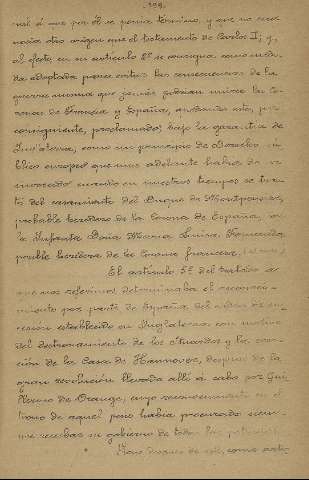 nal á que por él se ponia término, y que no reco-
nocia otro origen que el testamento de Carlos II; y,
al efecto, en su artículo 2º se consigna como medi-
da adoptada para evitar las consecuencias de la
guerra misma que jamás podrian unirse las Co-
ronas de Francia y España, quedando esto, por
consiguiente, proclamado, bajo la garantia de
Inglaterra, como un principio de Derecho pú-
blico europeo que mas adelante habia de ser
invocado cuando en nuestros tiempos se tra-
tó del casamiento del Duque de Montpensier,
probable heredero de la Corona de España, con
la Infanta Doña Maria Luisa Fernanda
posible heredera de la Corona francesa.
El artículo 5º del tratado á
que nos referimos determinaba el reconoci-
miento por parte de España del orden de su-
cesion establecido en Inglaterra con motivo
del destronamiento de los Stuardos y la
de la Casa de Hannover, despues de la
gran revolucion llevada allí á cabo por Gui-
llermo de Orange, cuyo reconocimiento en el
trono de aquel pais habia procurado siem-
pre recabar su gobierno de todas las potencias.
como